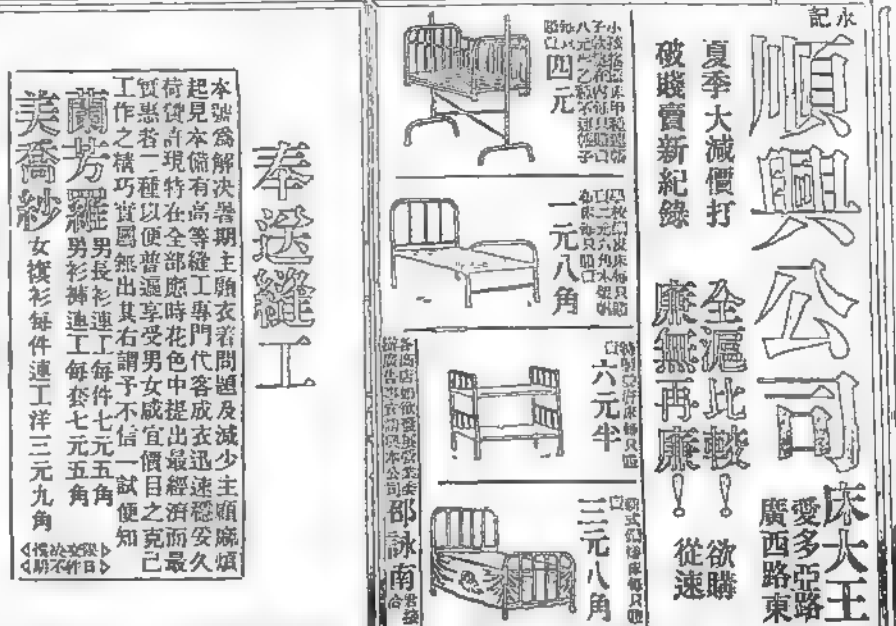 永記
順興公司
床大王
愛多亞路
廣西路東
夏季大減價打
破賤賣新紀錄
全滬比較!
廉無再廉!
欲購
從速
四元
一元八角
六元半
三元八角
各商店如欲發展營業委
辦廣告事宜請與本公司
邵詠南
奉送縫工
本號為解決暑期主顧衣着問題及減少主顧麻煩
起見本備有高等縫工專門代客成衣迅速穩妥久
荷贊許現特在全部應時花色中提出最經濟而最
實惠者二種以便普遍享受男女咸宜價目之克己
工作之精巧實屬無出其右謂予不信一試便知
蘭芳羅
男長衫連工每件七元五角
男衫褲連工每套七元五角
美喬紗
女旗衫每件連工洋三元九角